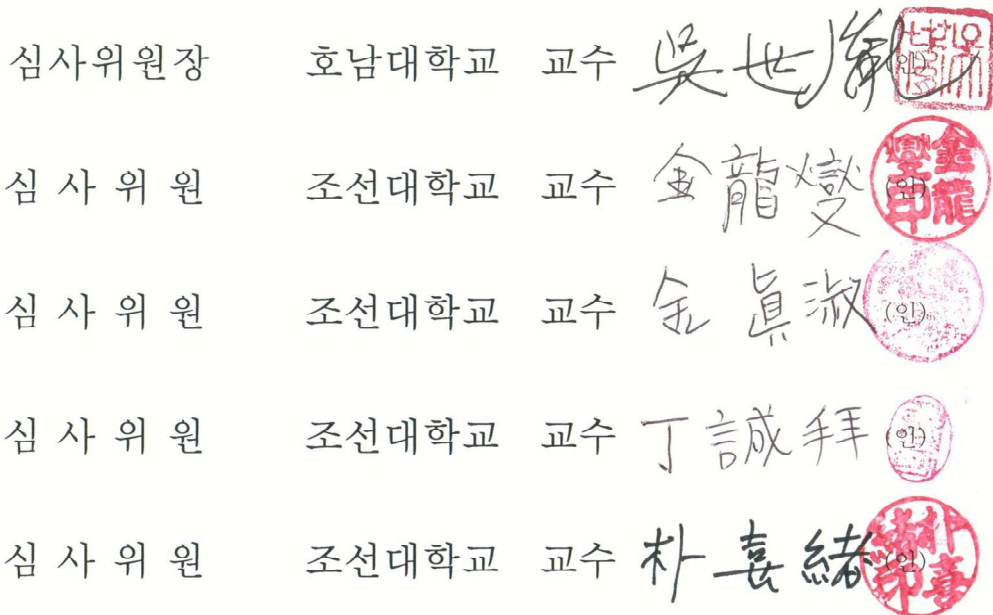 심사위원장 호남대학교 교수 吳世 (인)
심사위원 조선대학교 교수 金龍燮 (인)
심사위원 조선대학교 교수 金眞淑 (인)
심사위원 조선대학교 교수 丁誠拜 (인)
심사위원 조선대학교 교수 朴喜緖 (인)